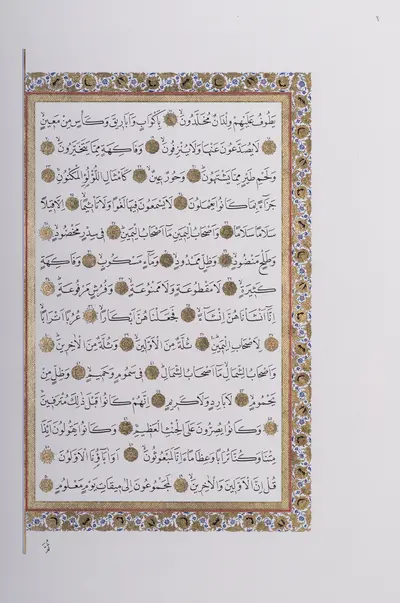 يَطُوفُ عَلَيْهِمْ وِلْدَانٌ مُخَلَّدُونَ بِاَكْوَابٍ وَاَبَارِيقَ وَكَأْسٍ مِنْ مَعِينٍ
لَا يُصَدَّعُونَ عَنْهَا وَلَا يُنْزِفُونَ وَفَاكِهَةٍ مِمَّا يَتَخَيَّرُونَ
وَلَحْمِ طَيْرٍ مِمَّا يَشْتَهُونَ وَحُورٌ عِينٌ كَاَمْثَالِ اللُّؤْلُؤِ الْمَكْنُونِ
جَزَاءً بِمَا كَانُوا يَعْمَلُونَ لَا يَسْمَعُونَ فِيهَا لَغْوًا وَلَا تَأْثِيمًا اِلَّا قِيلًا
سَلَامًا سَلَامًا وَاَصْحَابُ الْيَمِينِ مَا اَصْحَابُ الْيَمِينِ فِى سِدْرٍ مَخْضُودٍ
وَطَلْحٍ مَنْضُودٍ وَظِلٍّ مَمْدُودٍ وَمَاءٍ مَسْكُوبٍ وَفَاكِهَةٍ
كَثِيرَةٍ لَا مَقْطُوعَةٍ وَلَا مَمْنُوعَةٍ وَفُرُشٍ مَرْفُوعَةٍ
اِنَّا اَنْشَأْنَاهُنَّ اِنْشَاءً فَجَعَلْنَاهُنَّ اَبْكَارًا عُرُبًا اَتْرَابًا
لِاَصْحَابِ الْيَمِينِ ثُلَّةٌ مِنَ الْاَوَّلِينَ وَثُلَّةٌ مِنَ الْاٰخِرِينَ
وَاَصْحَابُ الشِّمَالِ مَا اَصْحَابُ الشِّمَالِ فِى سَمُومٍ وَحَمِيمٍ وَظِلٍّ مِنْ
يَحْمُومٍ لَا بَارِدٍ وَلَا كَرِيمٍ اِنَّهُمْ كَانُوا قَبْلَ ذٰلِكَ مُتْرَفِينَ
وَكَانُوا يُصِرُّونَ عَلَى الْحِنْثِ الْعَظِيمِ وَكَانُوا يَقُولُونَ اَئِذَا
مِتْنَا وَكُنَّا تُرَابًا وَعِظَامًا ءَاِنَّا لَمَبْعُوثُونَ اَوَ اٰبَاؤُنَا الْاَوَّلُونَ
قُلْ اِنَّ الْاَوَّلِينَ وَالْاٰخِرِينَ لَمَجْمُوعُونَ اِلٰى مِيقَاتِ يَوْمٍ مَعْلُومٍ